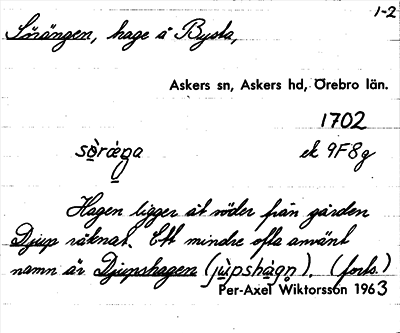 1-2
Sörängen, hage å Bysta,
Askers sn, Askers hd, Örebro län.
1702
sö̀ræŋa ek 9F8g
Hagen ligger åt söder från gården
Djup räknat. Ett mindre ofta använt
namn är Djupshagen (jùpshàgn̥). (forts.)
Per-Axel Wiktorsson 1963